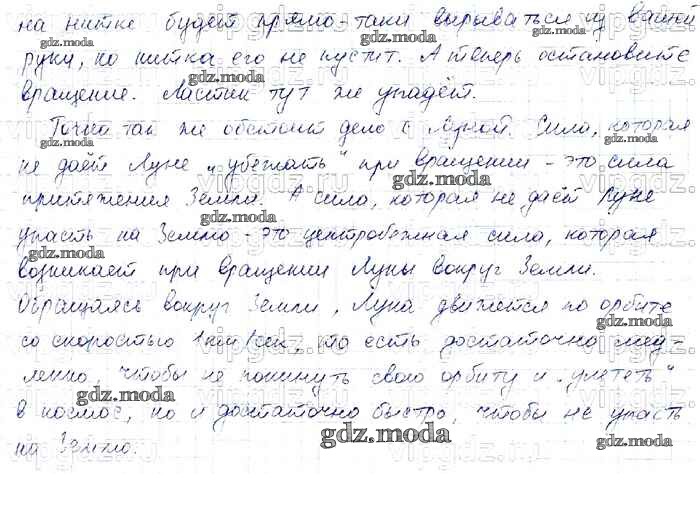 на нитке будет прямо-таки вырываться из вашей
руки, но нитка его не пустит. А теперь остановите
вращение. Ластик тут же упадёт.
Точно так же обстоит дело с Луной. Сила, которая
не даёт Луне „убежать" при вращении - это сила
притяжения Земли. А сила, которая не даёт Луне
упасть на Землю - это центробежная сила, которая
возникает при вращении Луны вокруг Земли.
Обращаясь вокруг Земли, Луна движется по орбите
со скоростью 1 км/сек, то есть достаточно мед-
ленно, чтобы не покинуть свою орбиту и „улететь"
в космос, но и достаточно быстро, чтобы не упасть
на Землю.
gdz.moda
gdz.moda
gdz.moda
gdz.moda
gdz.moda
gdz.moda
gdz.moda
gdz.moda
gdz.moda
gdz.moda
gdz.moda
gdz.moda
gdz.moda